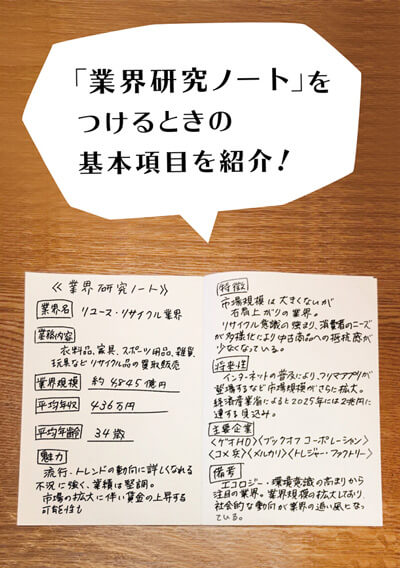 「業界研究ノート」を
つけるときの
基本項目を紹介！
≪業界研究ノート≫
業界名 リユース・リサイクル業界
業務内容
衣料品、家具、スポーツ用品、雑貨、
玩具などリサイクル品の買取販売
業界規模 約4845億円
平均年収 436万円
平均年齢 34歳
魅力
流行・トレンドの動向に詳しくなれる
不況に強く、業績は堅調。
市場の拡大に伴い賃金の上昇する
可能性も
特徴
市場規模は大きくないが
右肩上がりの業界。
リサイクル意識の強まり、消費者のニーズ
が多様化により中古商品への抵抗感が
少なくなっている。
将来性
インターネットの普及により、フリマアプリが
登場するなど市場規模がさらに拡大。
経済産業省によると2025年には2兆円に
達する見込み。
主要企業
<ゲオHD><ブックオフコーポレーション>
<コメ兵><メルカリ><トレジャー・ファクトリー>
備考
エコロジー・環境意識の高まりから
注目の業界。業界規模の拡大しており、
社会的な動向が業界の追い風になっ
ている。